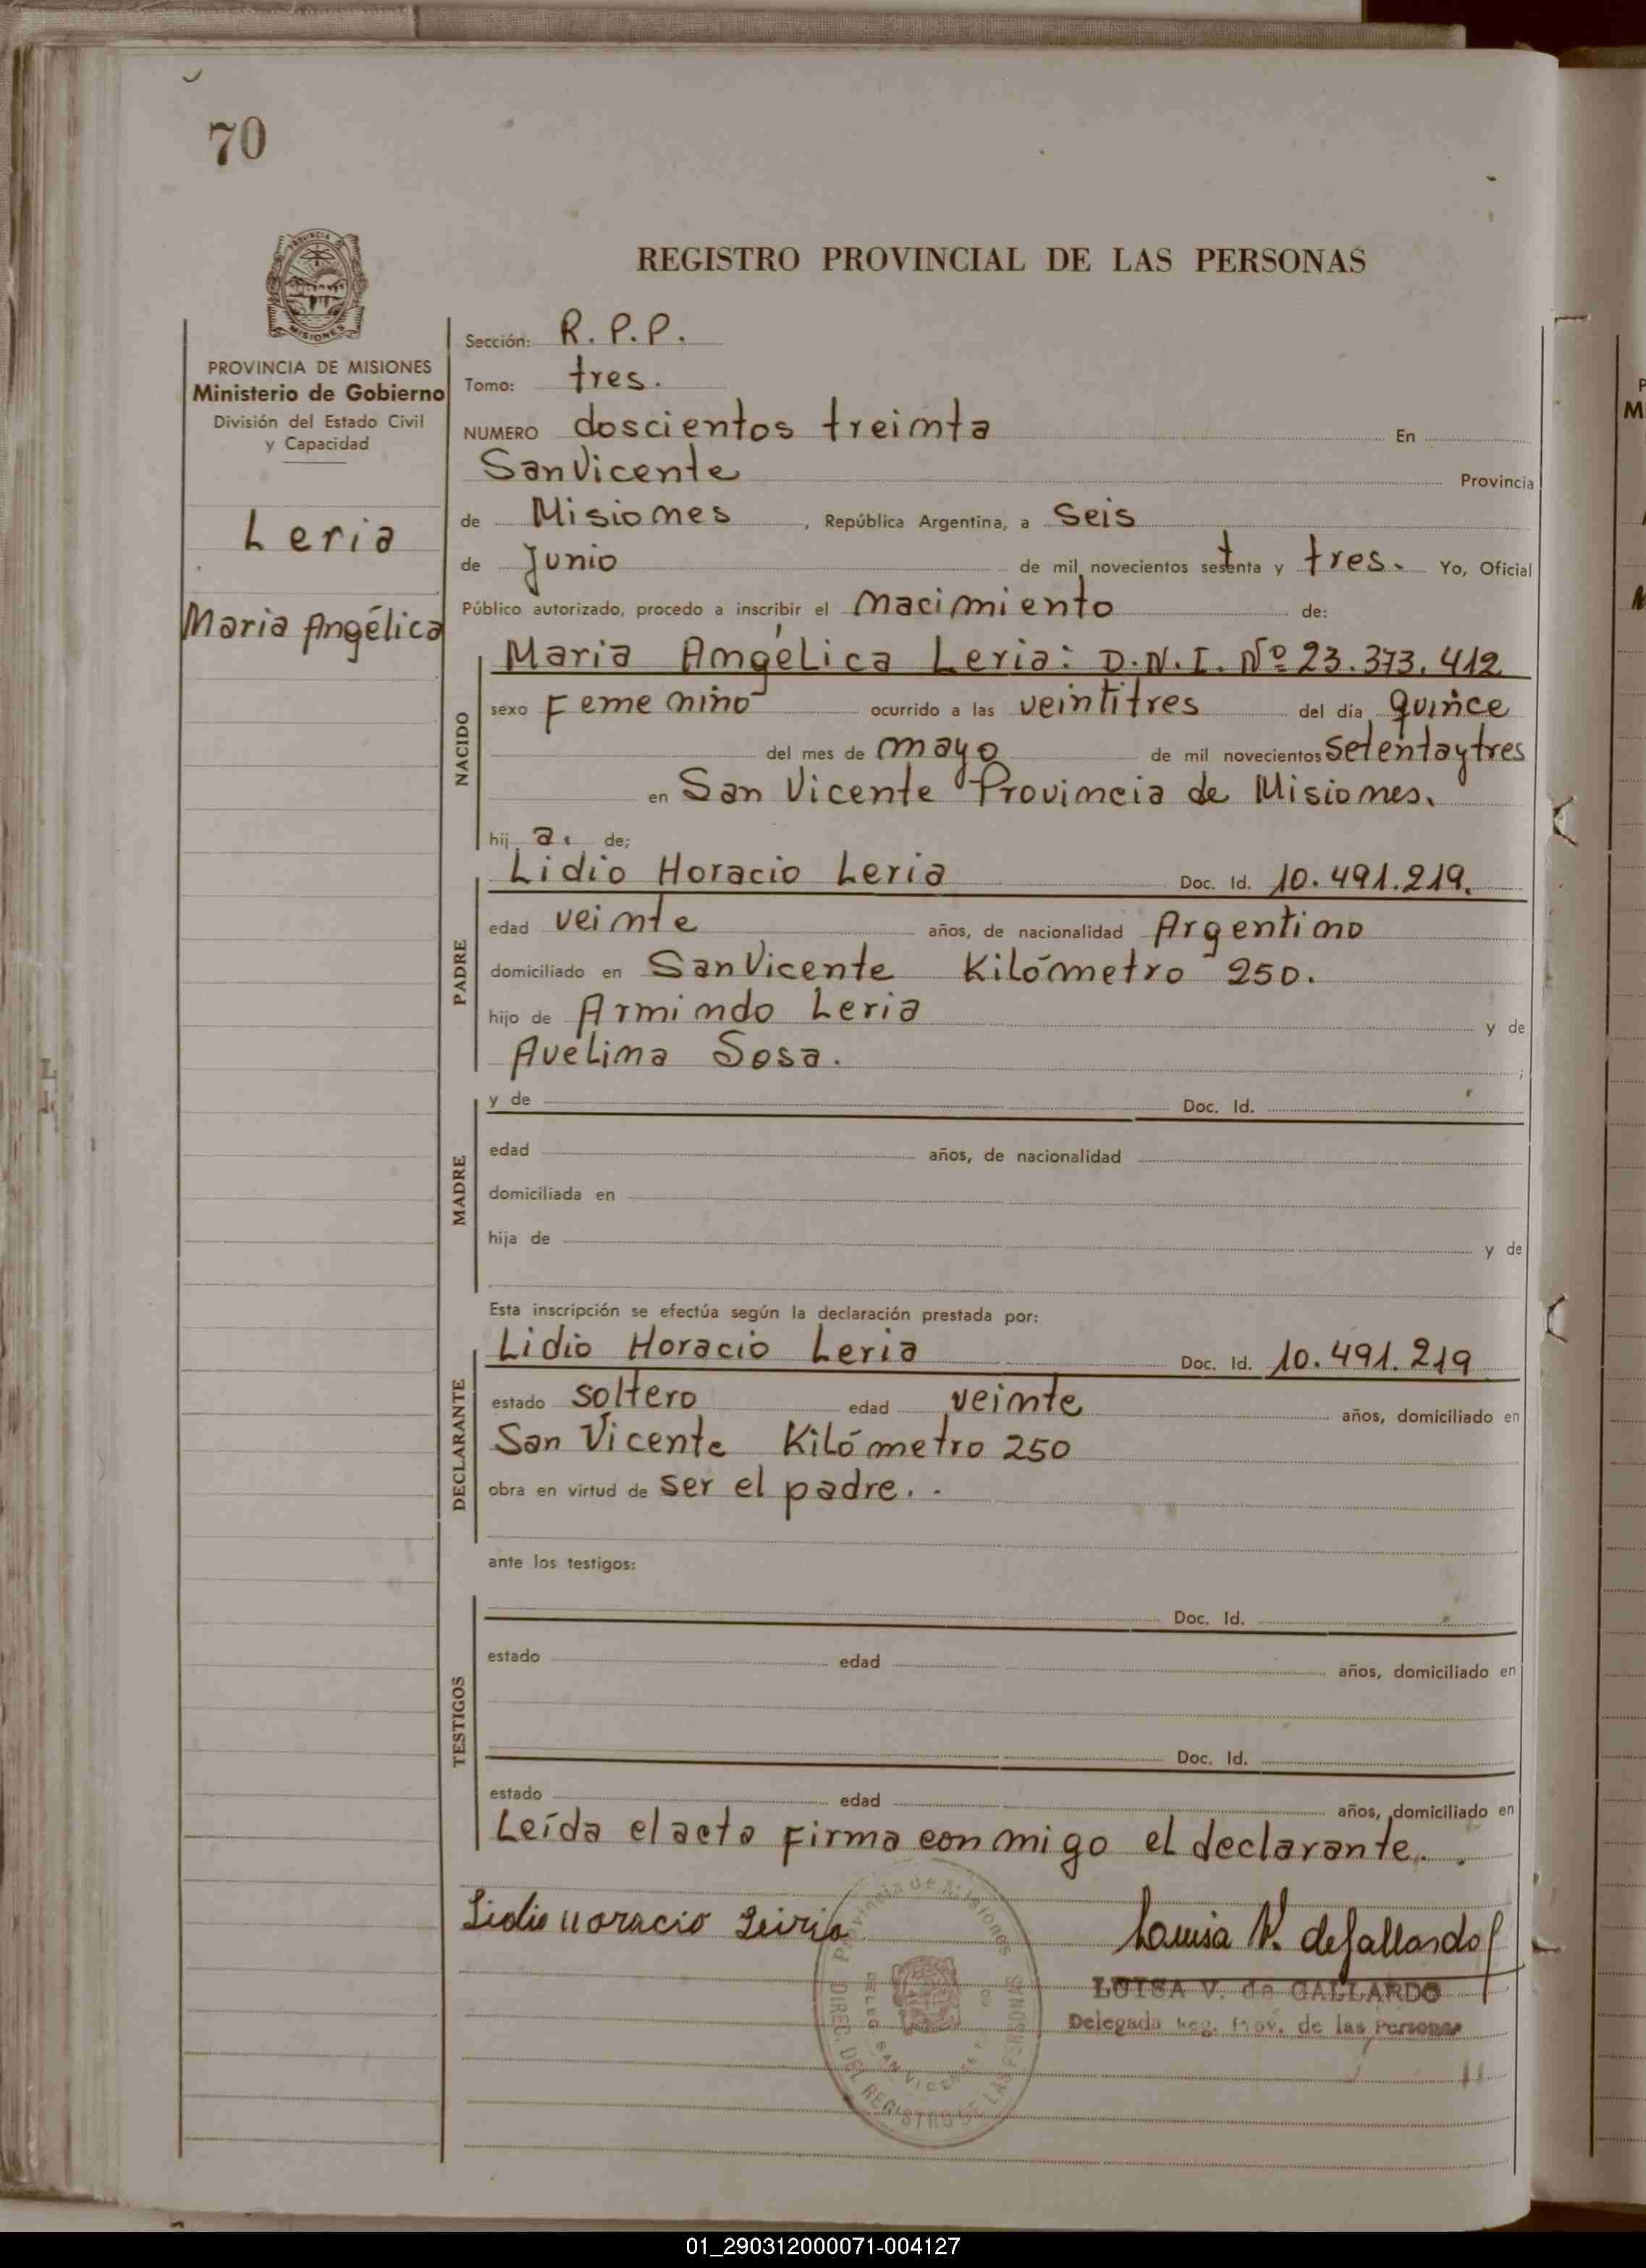 70
PROVINCIA DE
MISIONES
REGISTRO PROVINCIAL DE LAS PERSONAS
PROVINCIA DE MISIONES
Ministerio de Gobierno
División del Estado Civil
y Capacidad
Leria
Maria Angélica
Sección: R. P. P.
Tomo: tres.
NUMERO doscientos treinta En
San Vicente Provincia
de Misiones, República Argentina, a Seis
de Junio de mil novecientos setenta y tres. Yo, Oficial
Público autorizado, procedo a inscribir el nacimiento de:
NACIDO
Maria Angélica Leria: D.N.I. Nº 23.373.412
sexo Femenino ocurrido a las veintitres del día quince
del mes de mayo de mil novecientos setenta y tres
en San Vicente Provincia de Misiones.
hij a. de;
PADRE
Lidio Horacio Leria Doc. Id. 10.491.219.
edad veinte años, de nacionalidad Argentino
domiciliado en San Vicente Kilómetro 250.
hijo de Armindo Leria y de
Avelina Sosa. ;
MADRE
y de Doc. Id.
edad años, de nacionalidad
domiciliada en
hija de y de
Esta inscripción se efectúa según la declaración prestada por:
DECLARANTE
Lidio Horacio Leria Doc. Id. 10.491.219
estado soltero edad veinte años, domiciliado en
San Vicente Kilómetro 250
obra en virtud de ser el padre. .
ante los testigos:
TESTIGOS
Doc. Id.
estado edad años, domiciliado en
Doc. Id.
estado edad años, domiciliado en
Leída el acta firma conmigo el declarante. .
Lidio Horacio Leiria
Luisa V. de Gallardo
LUISA V. de GALLARDO
Delegada Reg. Prov. de las Personas
Provincia de Misiones
DIREC. DEL REGISTRO DE LAS PERSONAS
SAN VICENTE
01_290312000071-004127